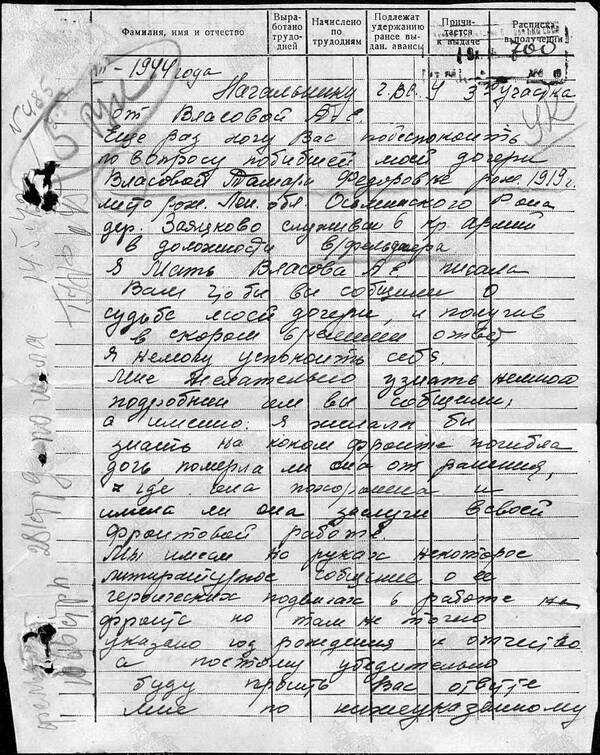 Фамилия, имя и отчество
Выра-
ботано
трудо-
дней
Начислено
по
трудодням
Подлежат
удержанию
ранее вы-
дан. авансы
Причи-
тается
к выдаче
Расписка
в получении
700
- 1944 года
Начальнику участка
от Власовой А Е.
Еще раз хочу Вас побеспокоить
по вопросу погибшей моей дочери
Власовой Тамары Федоровне рож. 1919 г.
место рож. Лен. обл. Осьминского Рона
дер. Заяцково служивши в кр. армии
в должности в/фельдшера
Я Мать Власова А Е писала
Вам чтобы вы сообщили о
судьбе моей дочери, и получив
в скором времени ответ
Я немогу успокоить себя.
Мне желательно узнать немного
подробнея чем вы сообщили,
а именно: я желала бы
знать на каком фронте погибла
дочь померла ли она от ранения,
где она похоронена и
имела ли она заслуги в своей
фронтовой работе
Мы имеем на руках некоторое
литературное сообщение о ее
героических подвигах в работе на
фронте но там не точно
указано год рождения и отчество
а поэтому убедительно
буду просить Вас ответте
мне по нижеуказанному